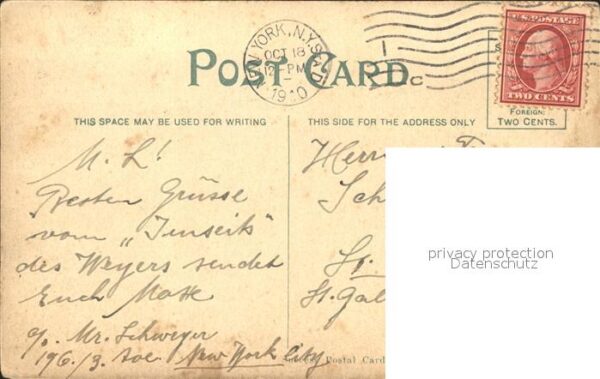 NEW YORK, N.Y. STA. D
OCT 18
12-PM
1910
U.S. POSTAGE
TWO CENTS
POST CARD.
FOREIGN:
TWO CENTS.
THIS SPACE MAY BE USED FOR WRITING
THIS SIDE FOR THE ADDRESS ONLY
M. L!
Besten Grüsse
vom „Jenseits"
des Weyers sendet
Euch Max
c/o Mr. Schweyer
196/3. Ave. New York City
Herrn
Sch
St.
St. Gal
Postal Card
privacy protection
Datenschutz